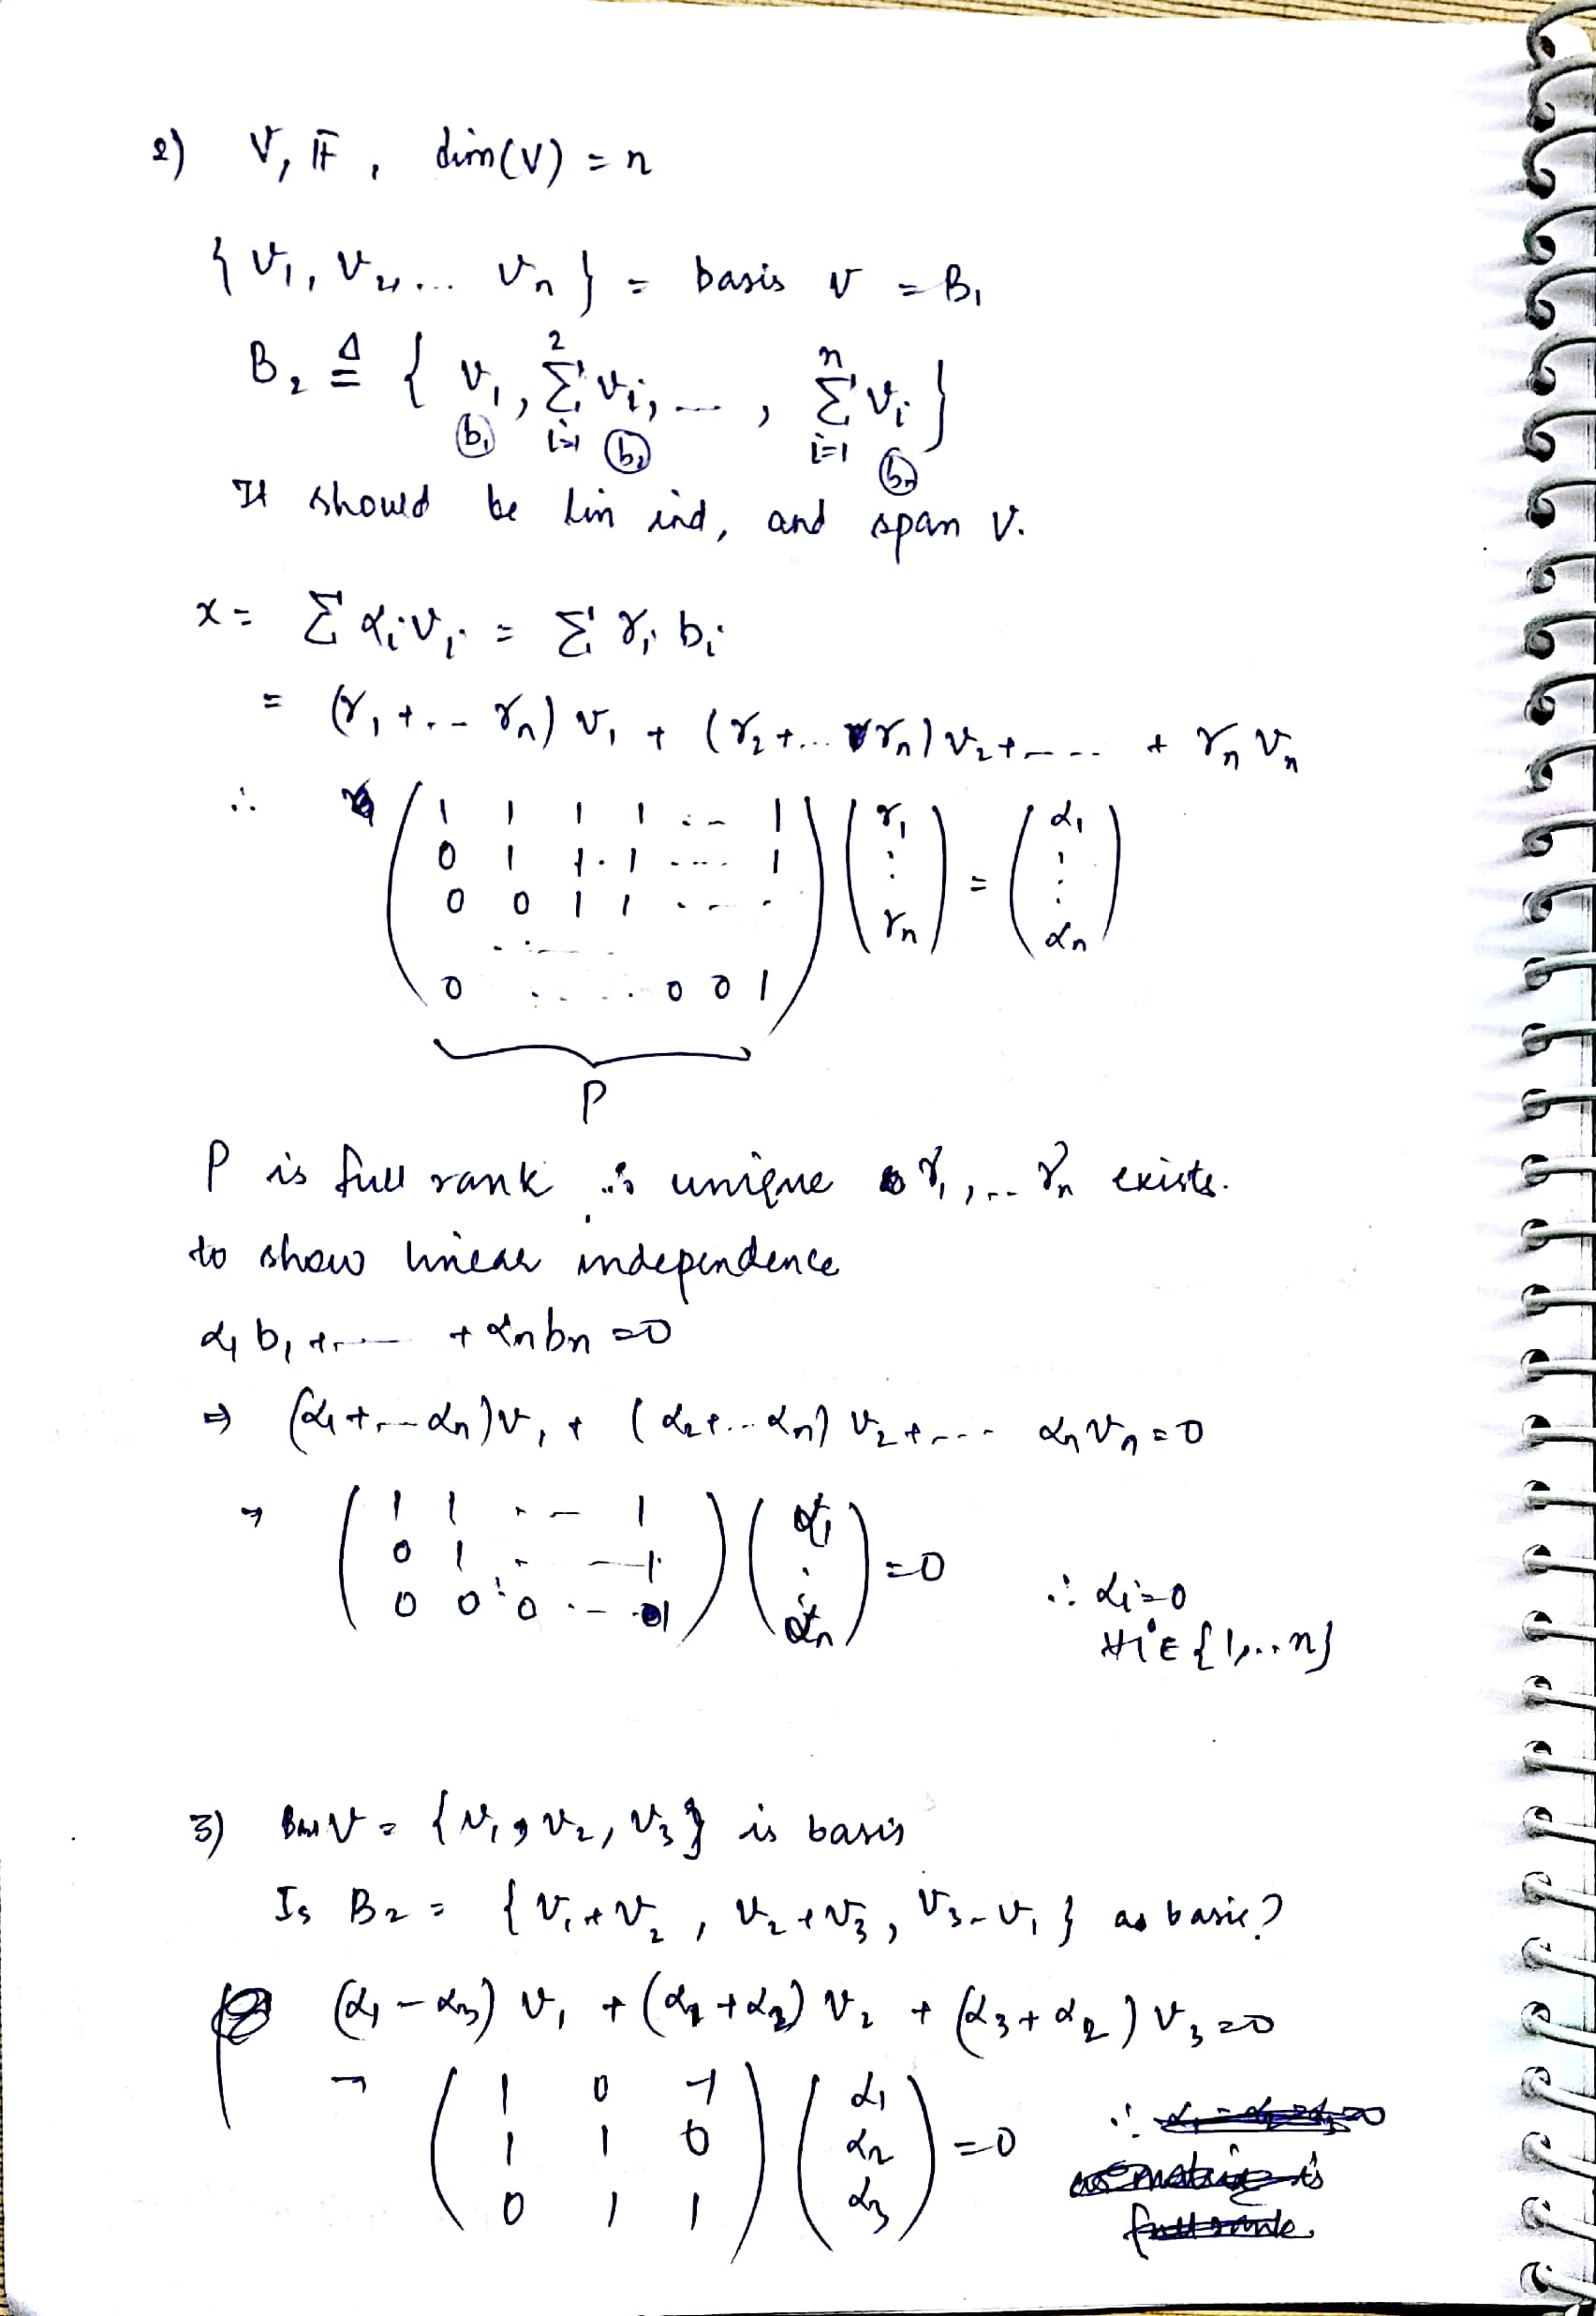 2) V, 𝔽, dim(V) = n
{ v₁, v₂, ... vₙ } = basis V = B₁
B₂ ≜ { v₁, Σᵢ₌₁² vᵢ, ... , Σᵢ₌₁ⁿ vᵢ }
b₁ b₂ bₙ
It should be lin ind, and span V.
x = Σ αᵢvᵢ = Σ γᵢ bᵢ
= (γ₁ + ... γₙ) v₁ + (γ₂ + ... γₙ) v₂ + ... + γₙ vₙ
∴ ( 1 1 1 1 ... 1 ; 0 1 1 1 ... 1 ; 0 0 1 1 .... ; ..... ; 0 ..... 0 0 1 ) ( γ₁ ⋮ γₙ ) = ( α₁ ⋮ αₙ )
P
P is full rank ∴ unique γ₁, ... γₙ exists.
to show linear independence
α₁ b₁ + ... + αₙ bₙ = 0
⇒ (α₁ + ... αₙ) v₁ + (α₂ + ... αₙ) v₂ + ... αₙ vₙ = 0
⇒ ( 1 1 ... 1 ; 0 1 ... 1 ; 0 0 0 ... 1 ) ( α₁ ⋮ αₙ ) = 0 ∴ αᵢ = 0
∀ i ∈ {1, ... n}
3) V = { v₁, v₂, v₃ } is basis
Is B₂ = { v₁ + v₂, v₂ + v₃, v₃ - v₁ } as basis?
(α₁ - α₃) v₁ + (α₁ + α₂) v₂ + (α₃ + α₂) v₃ = 0
⇒ ( 1 0 -1 ; 1 1 0 ; 0 1 1 ) ( α₁ α₂ α₃ ) = 0 ∴
as matrix is
full rank